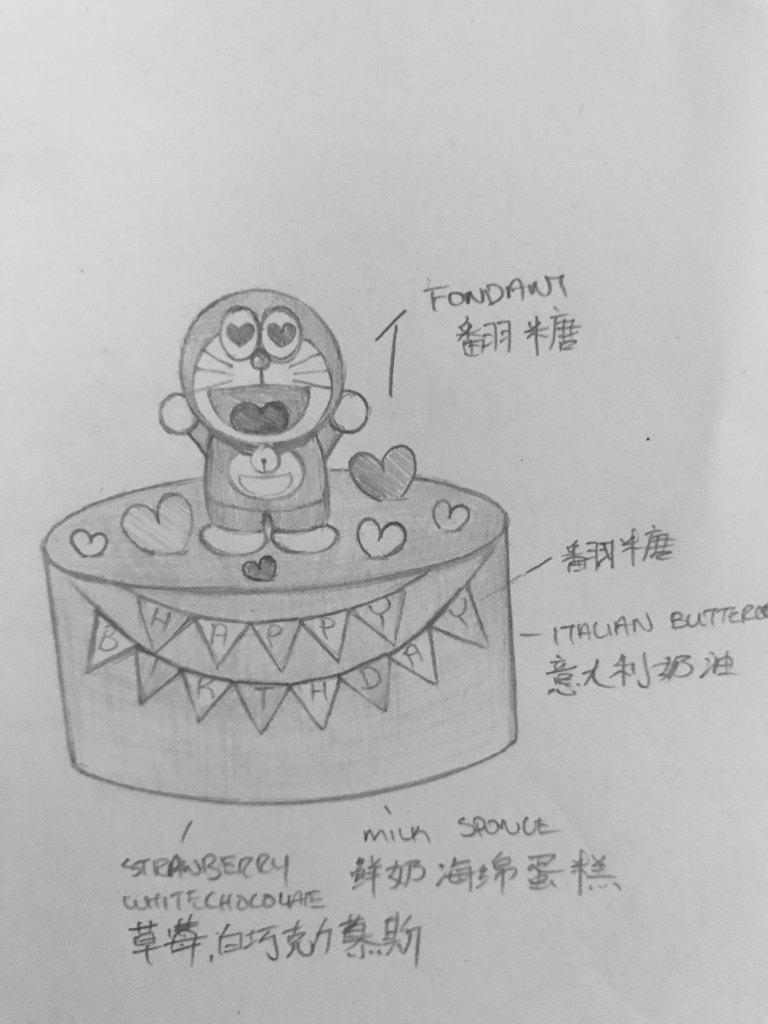 FONDANT
翻糖
翻糖
HAPPY
BIRTHDAY
ITALIAN BUTTERC
意大利奶油
MILK SPONGE
鲜奶海绵蛋糕
STRAWBERRY
WHITECHOCOLATE
草莓,白巧克力慕斯